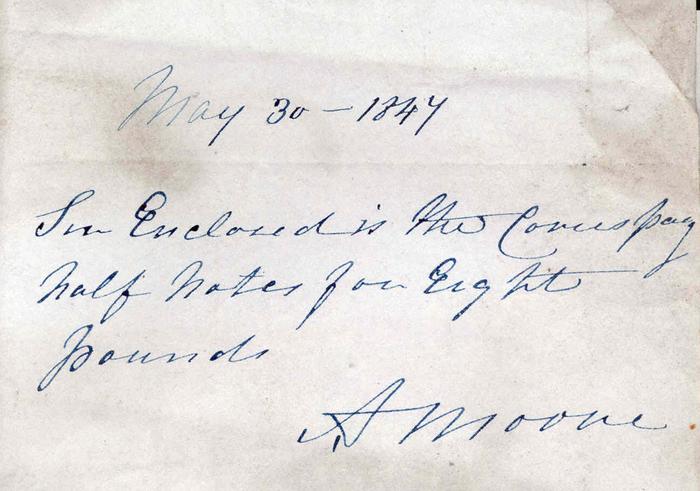 May 30 - 1847
Sir Enclosed is the Correspdg
half Notes for Eight
pounds
A Moore